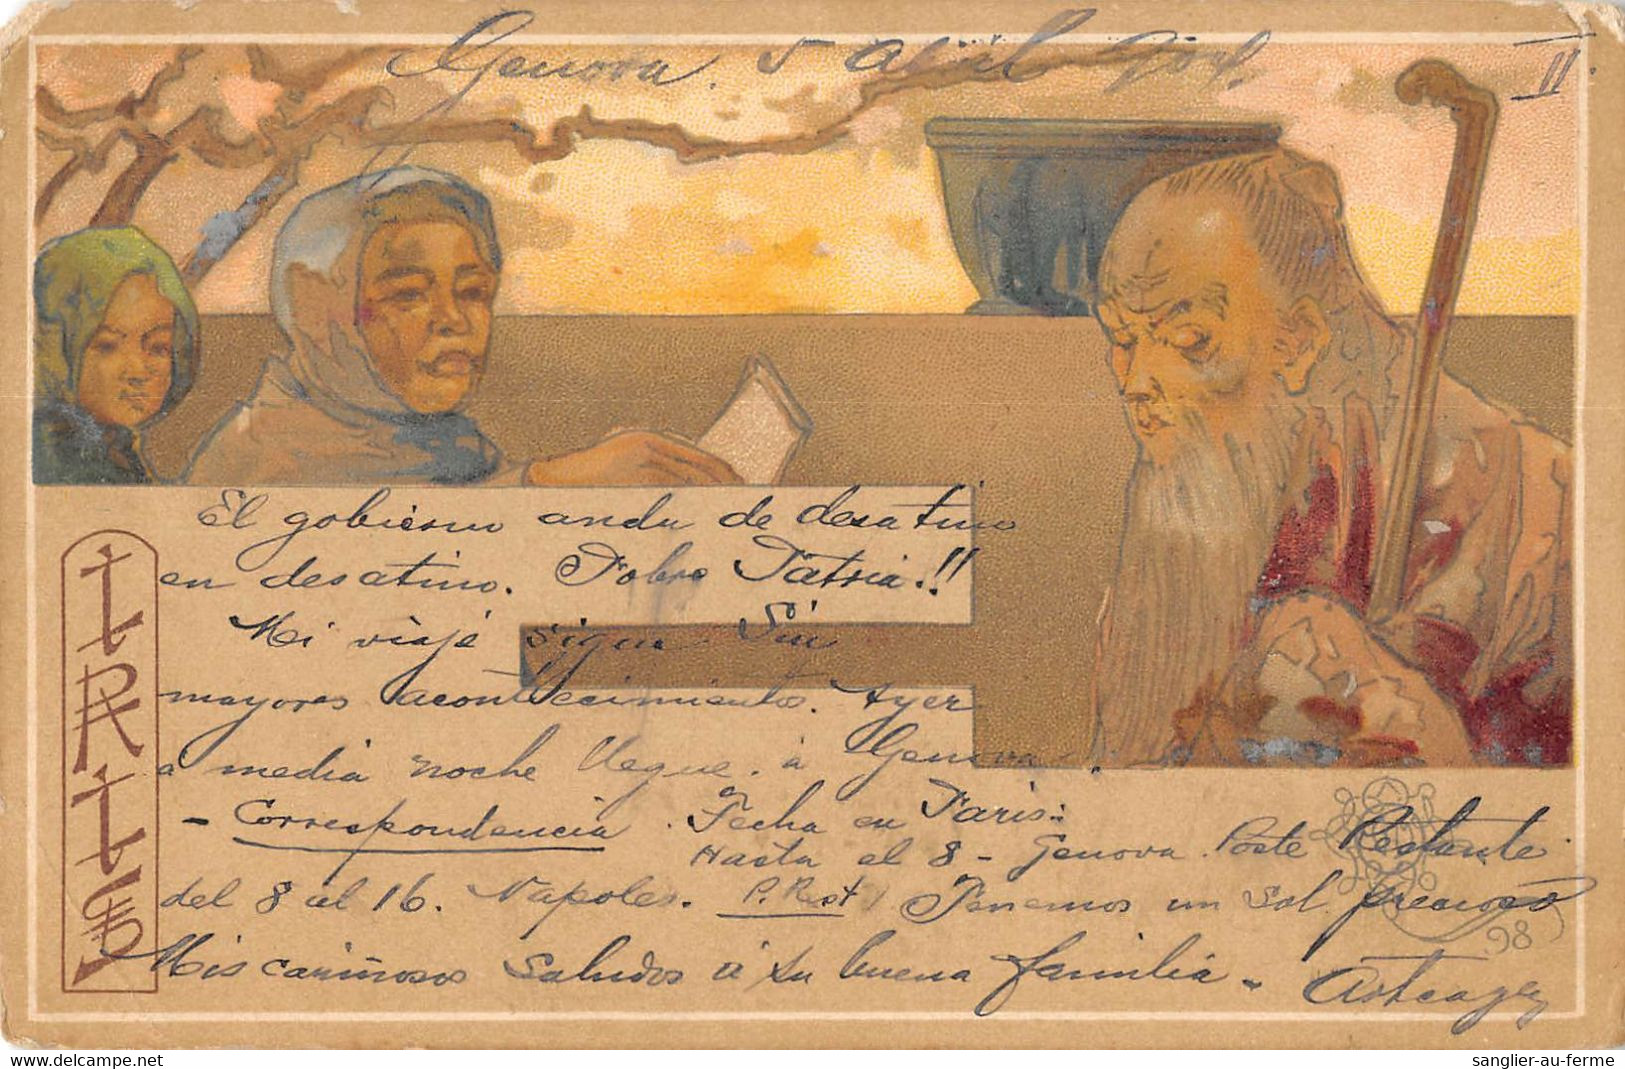 Genova. 5 Abril 904.
II.
El gobierno anda de desatino
en desatino. Pobre Patria!!
Mi viaje sigue sin
mayores acontecimientos. Ayer
a media noche llegue à Genova.
- Correspondencia. Fecha en Paris:
Hasta el 8 - Genova. Poste Restante
del 8 al 16. Napoles. P. Rest Tenemos un sol precioso
Mis cariñosos saludos á su buena familia -
IRIS
98
sanglier-au-ferme